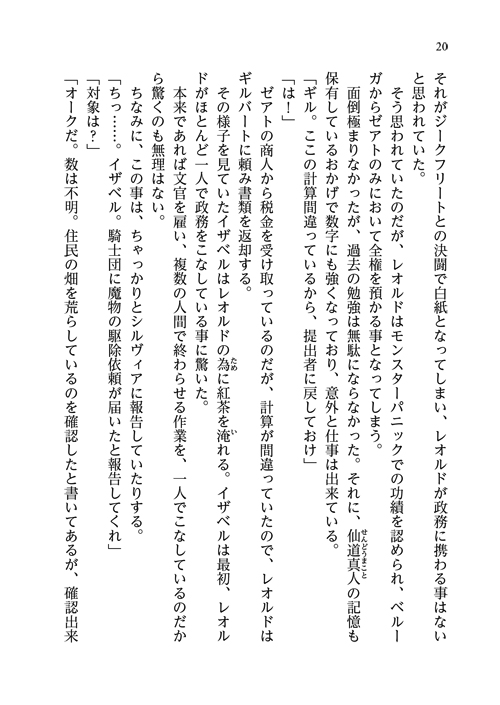 20
それがジークフリートとの決闘で白紙となってしまい、レオルドが政務に携わる事はない
と思われていた。
そう思われていたのだが、レオルドはモンスターパニックでの功績を認められ、ベルー
ガからゼアトのみにおいて全権を預かる事となってしまう。
面倒極まりなかったが、過去の勉強は無駄にならなかった。それに、仙道真人の記憶も
せんどうまこと
保有しているおかげで数字にも強くなっており、意外と仕事は出来ている。
「ギル。ここの計算間違っているから、提出者に戻しておけ」
「は！」
ゼアトの商人から税金を受け取っているのだが、計算が間違っていたので、レオルドは
ギルバートに頼み書類を返却する。
その様子を見ていたイザベルはレオルドの為に紅茶を淹れる。イザベルは最初、レオル
ため
い
ドがほとんど一人で政務をこなしている事に驚いた。
本来であれば文官を雇い、複数の人間で終わらせる作業を、一人でこなしているのだか
ら驚くのも無理はない。
ちなみに、この事は、ちゃっかりとシルヴィアに報告していたりする。
「ちっ……。イザベル。騎士団に魔物の駆除依頼が届いたと報告してくれ」
「対象は？」
「オークだ。数は不明。住民の畑を荒らしているのを確認したと書いてあるが、確認出来